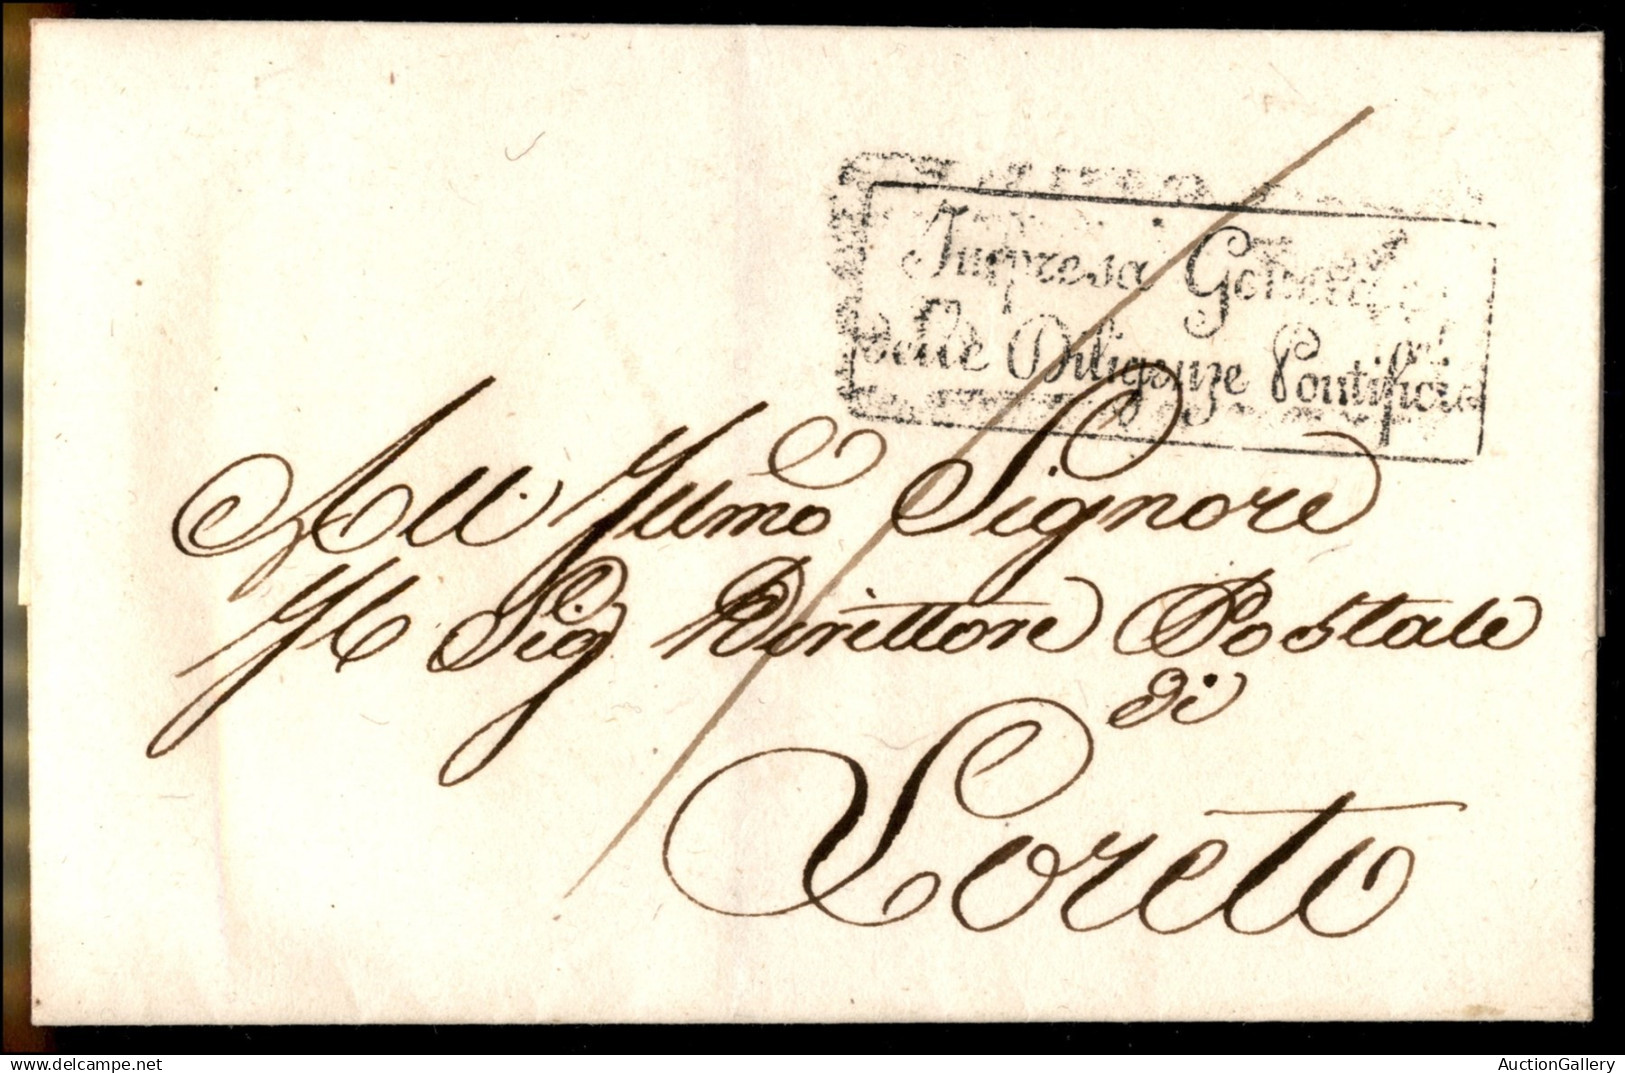 Impresa Generale
delle Diligenze Pontificie
All' Illmo Signore
Il Sig Direttore Postale
di
Loreto
AuctionGallery